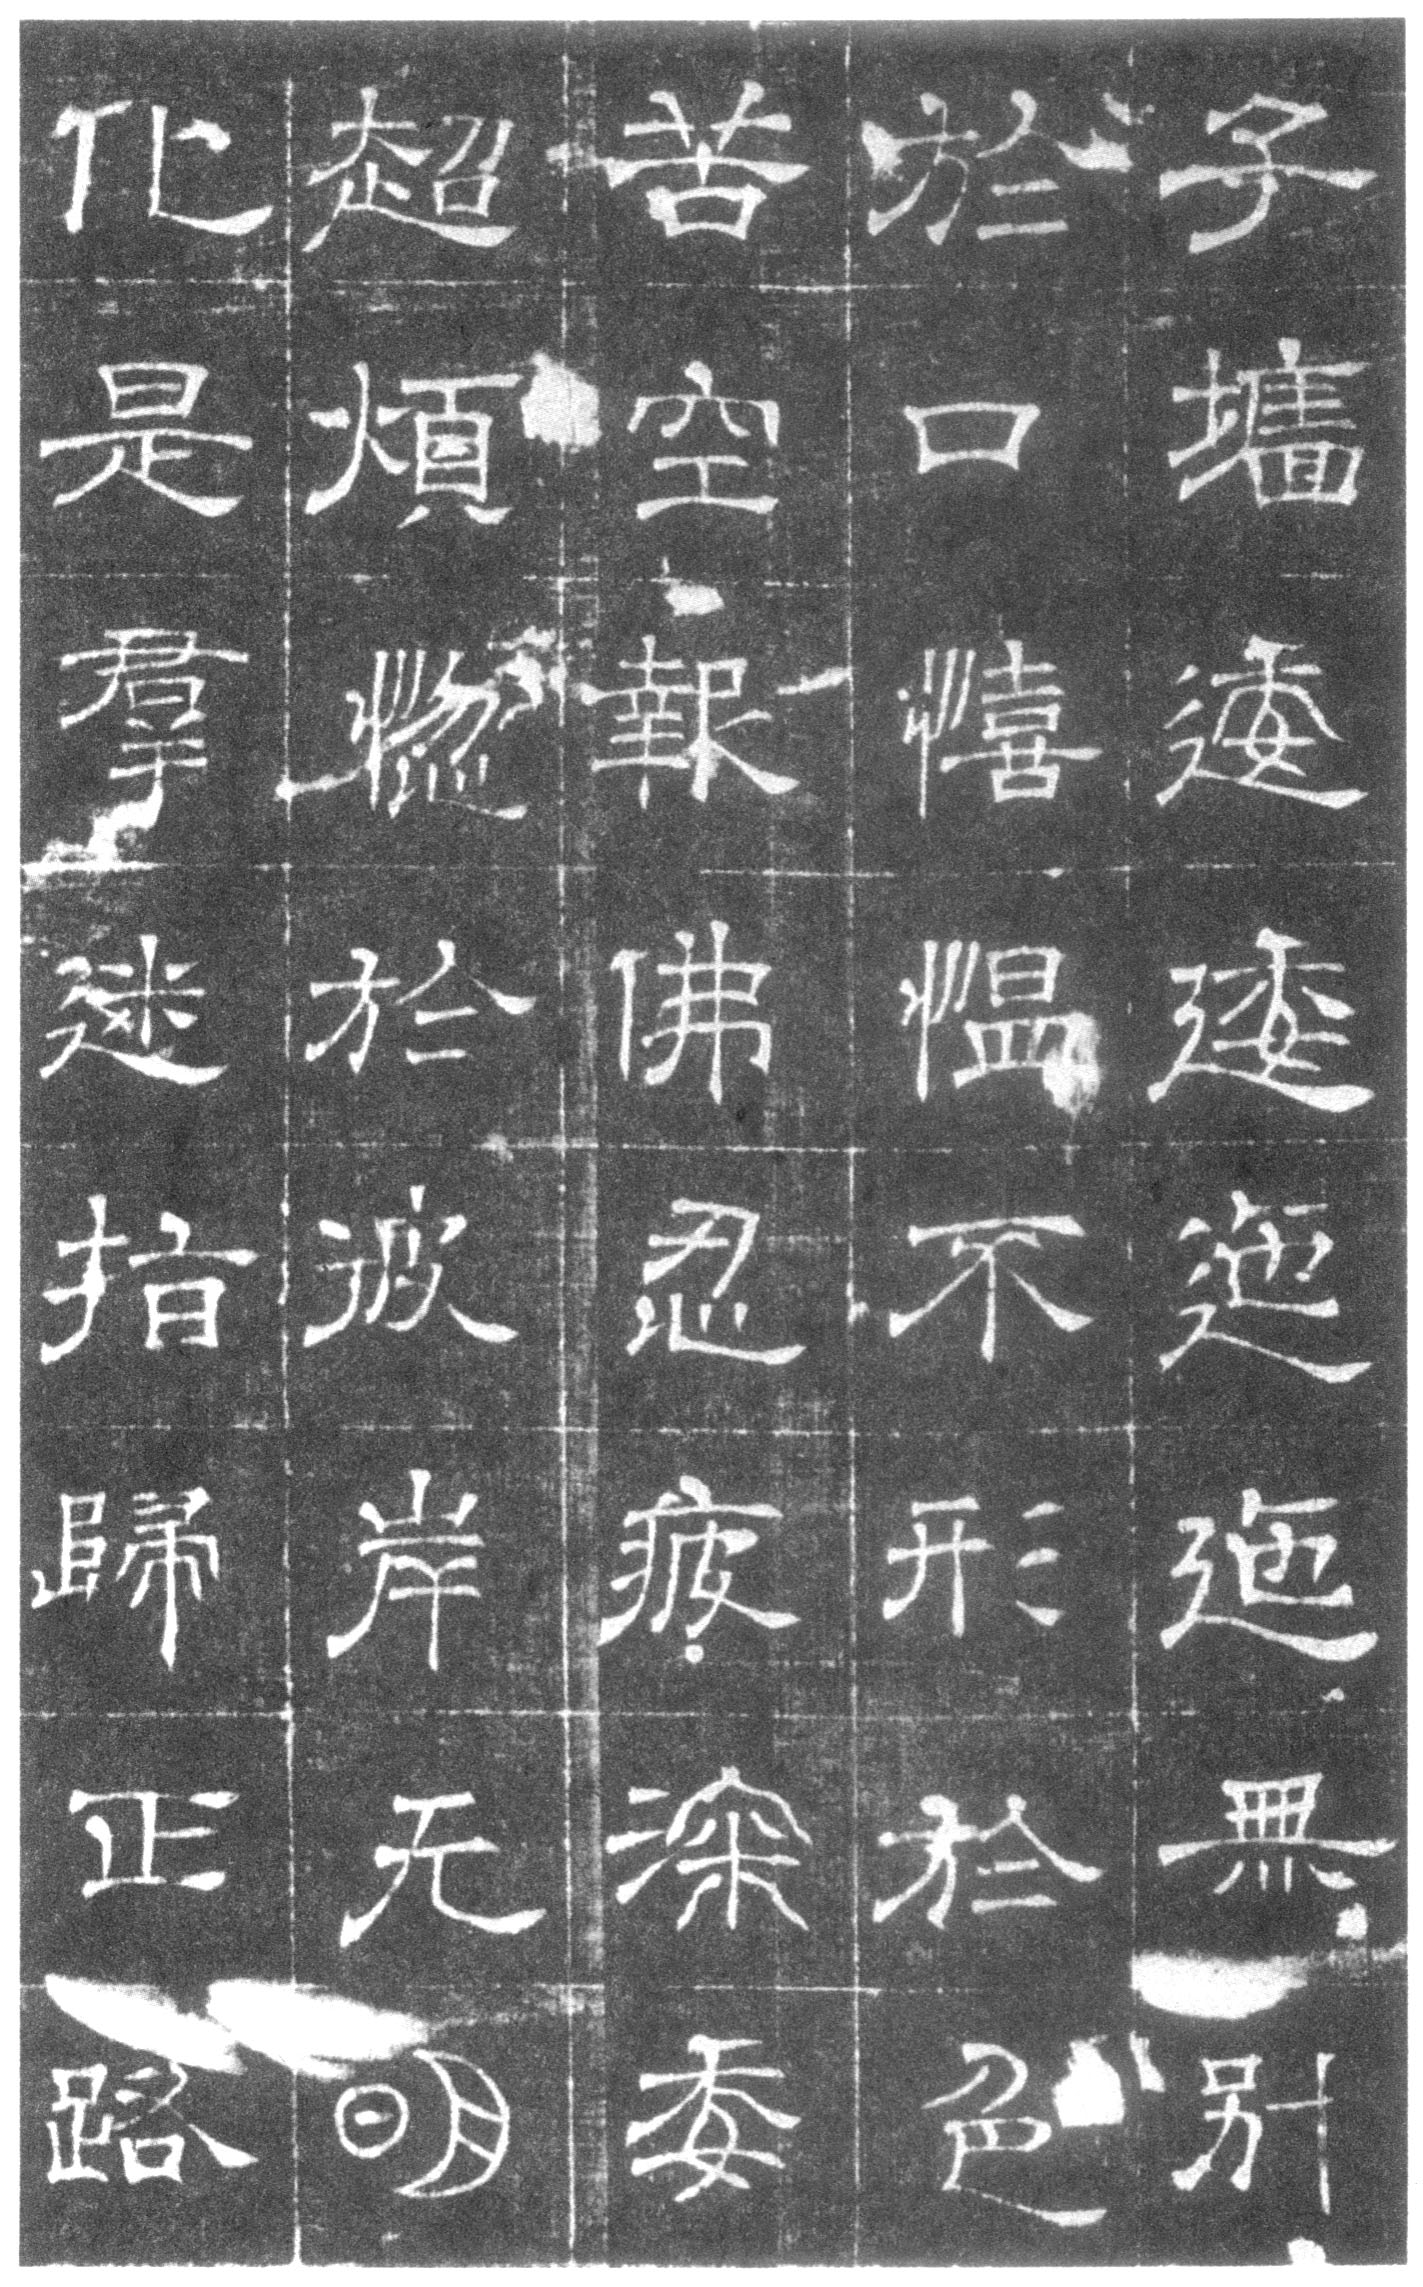 子墻逶逶迤迤無别
於口憘愠不形於色
苦空報佛忍疲深委
超煩惱於彼岸无明
化是羣迷指歸正路